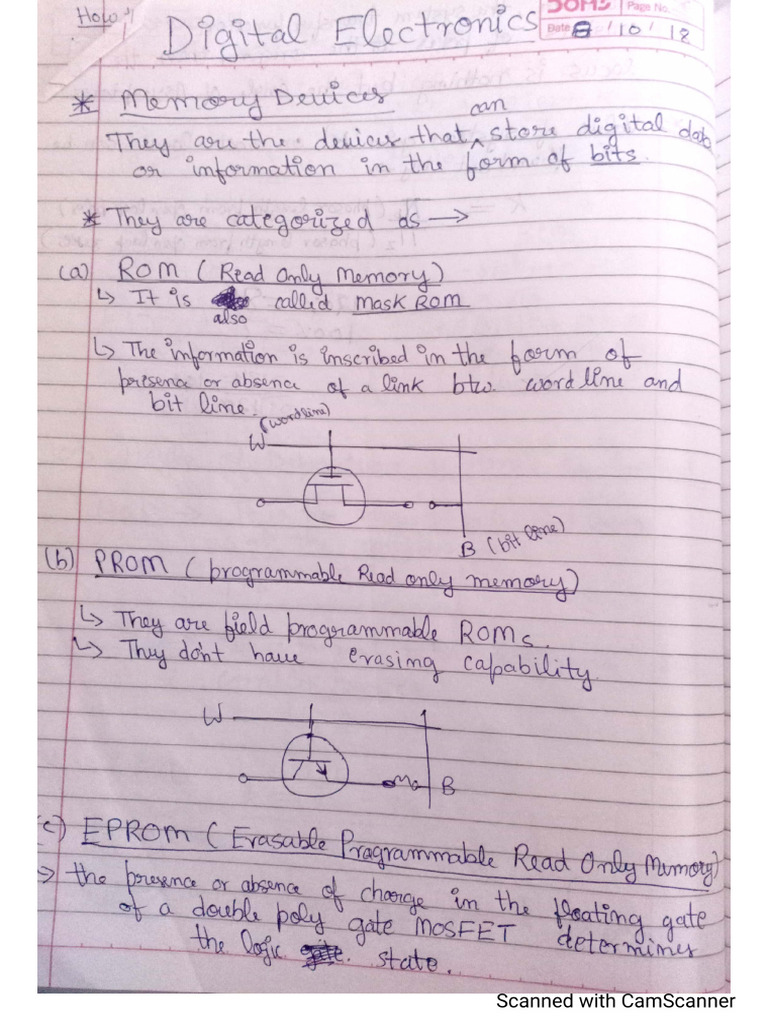 How
DOMS Page No.
Digital Electronics
Date 8 / 10 / 18
* Memory Devices
can
They are the devices that ^ store digital data
or information in the form of bits.
* They are categorized as →
(a) ROM (Read Only Memory)
↳ It is called Mask ROM
also
↳ The information is inscribed in the form of
presence or absence of a link btw. word line and
bit line.
W (wordline)
B (bit line)
(b) PROM (programmable Read only memory)
↳ They are field programmable ROMs.
↳ They don't have erasing capability.
W
B
(c) EPROM (Erasable Programmable Read Only Memory)
→ the presence or absence of charge in the floating gate
of a double poly gate MOSFET determines
the logic state.
Scanned with CamScanner